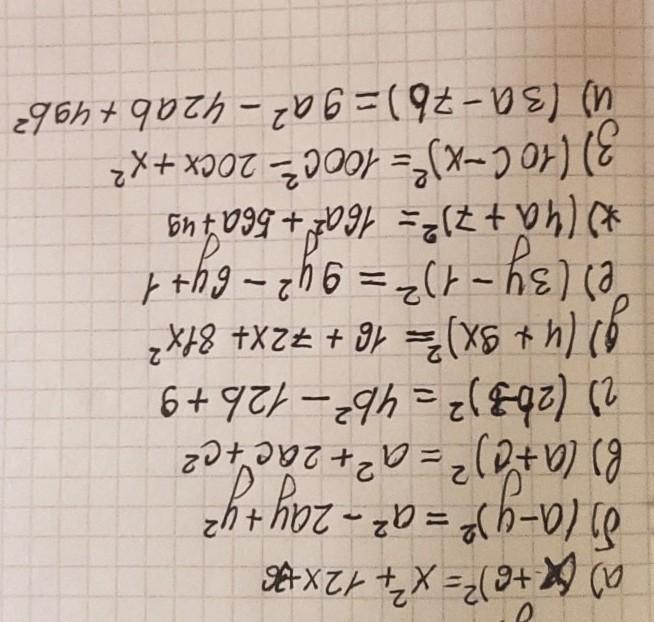 а) (x+6)²= x²+ 12x+36
б) (a-y)²= a²- 2ay+y²
в) (a+c)²= a²+2ac+c²
г) (2b-3)²= 4b²- 12b+9
д) (4+9x)²= 16+72x+81x²
е) (3y-1)²= 9y²-6y+1
ж) (4a+7)²= 16a²+56a+49
з) (10c-x)²= 100c²- 20cx+x²
и) (3a-7b)=9a²- 42ab+49b²